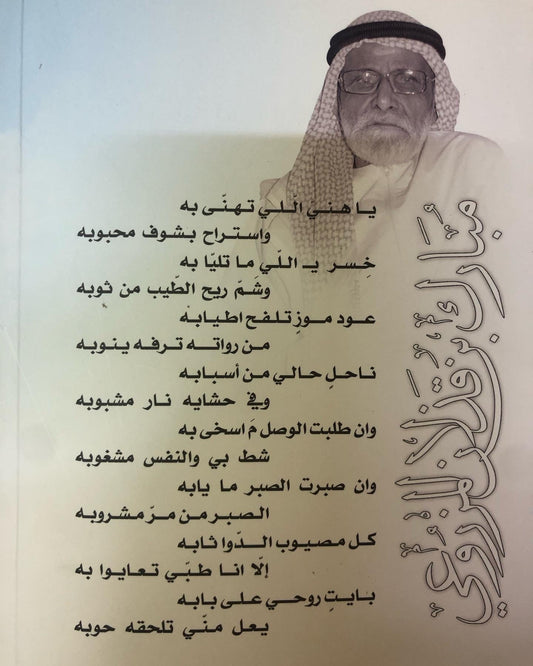 يا هنيّ الّلي تهنّى به
واستراح بشوف محبوبه
خِسر يـ اللّي ما تليّا به
وشمّ ريح الطّيب من ثوبه
عود موزٍ تلفح اطيابه
من رواته ترفه ينوبه
ناحلٍ حالي من أسبابه
وفي حشايه نار مشبوبه
وان طلبت الوصل مَ اسخى به
شط بي والنفس مشغوبه
وان صبرت الصبر ما يابه
الصبر من مرّ مشروبه
كل مصيوب الدّوا ثابه
إلّا انا طبّي تعايوا به
بايتٍ روحي على بابه
يعل منّي تلحقه حوبه
مبارك بن قذلان المزروعي